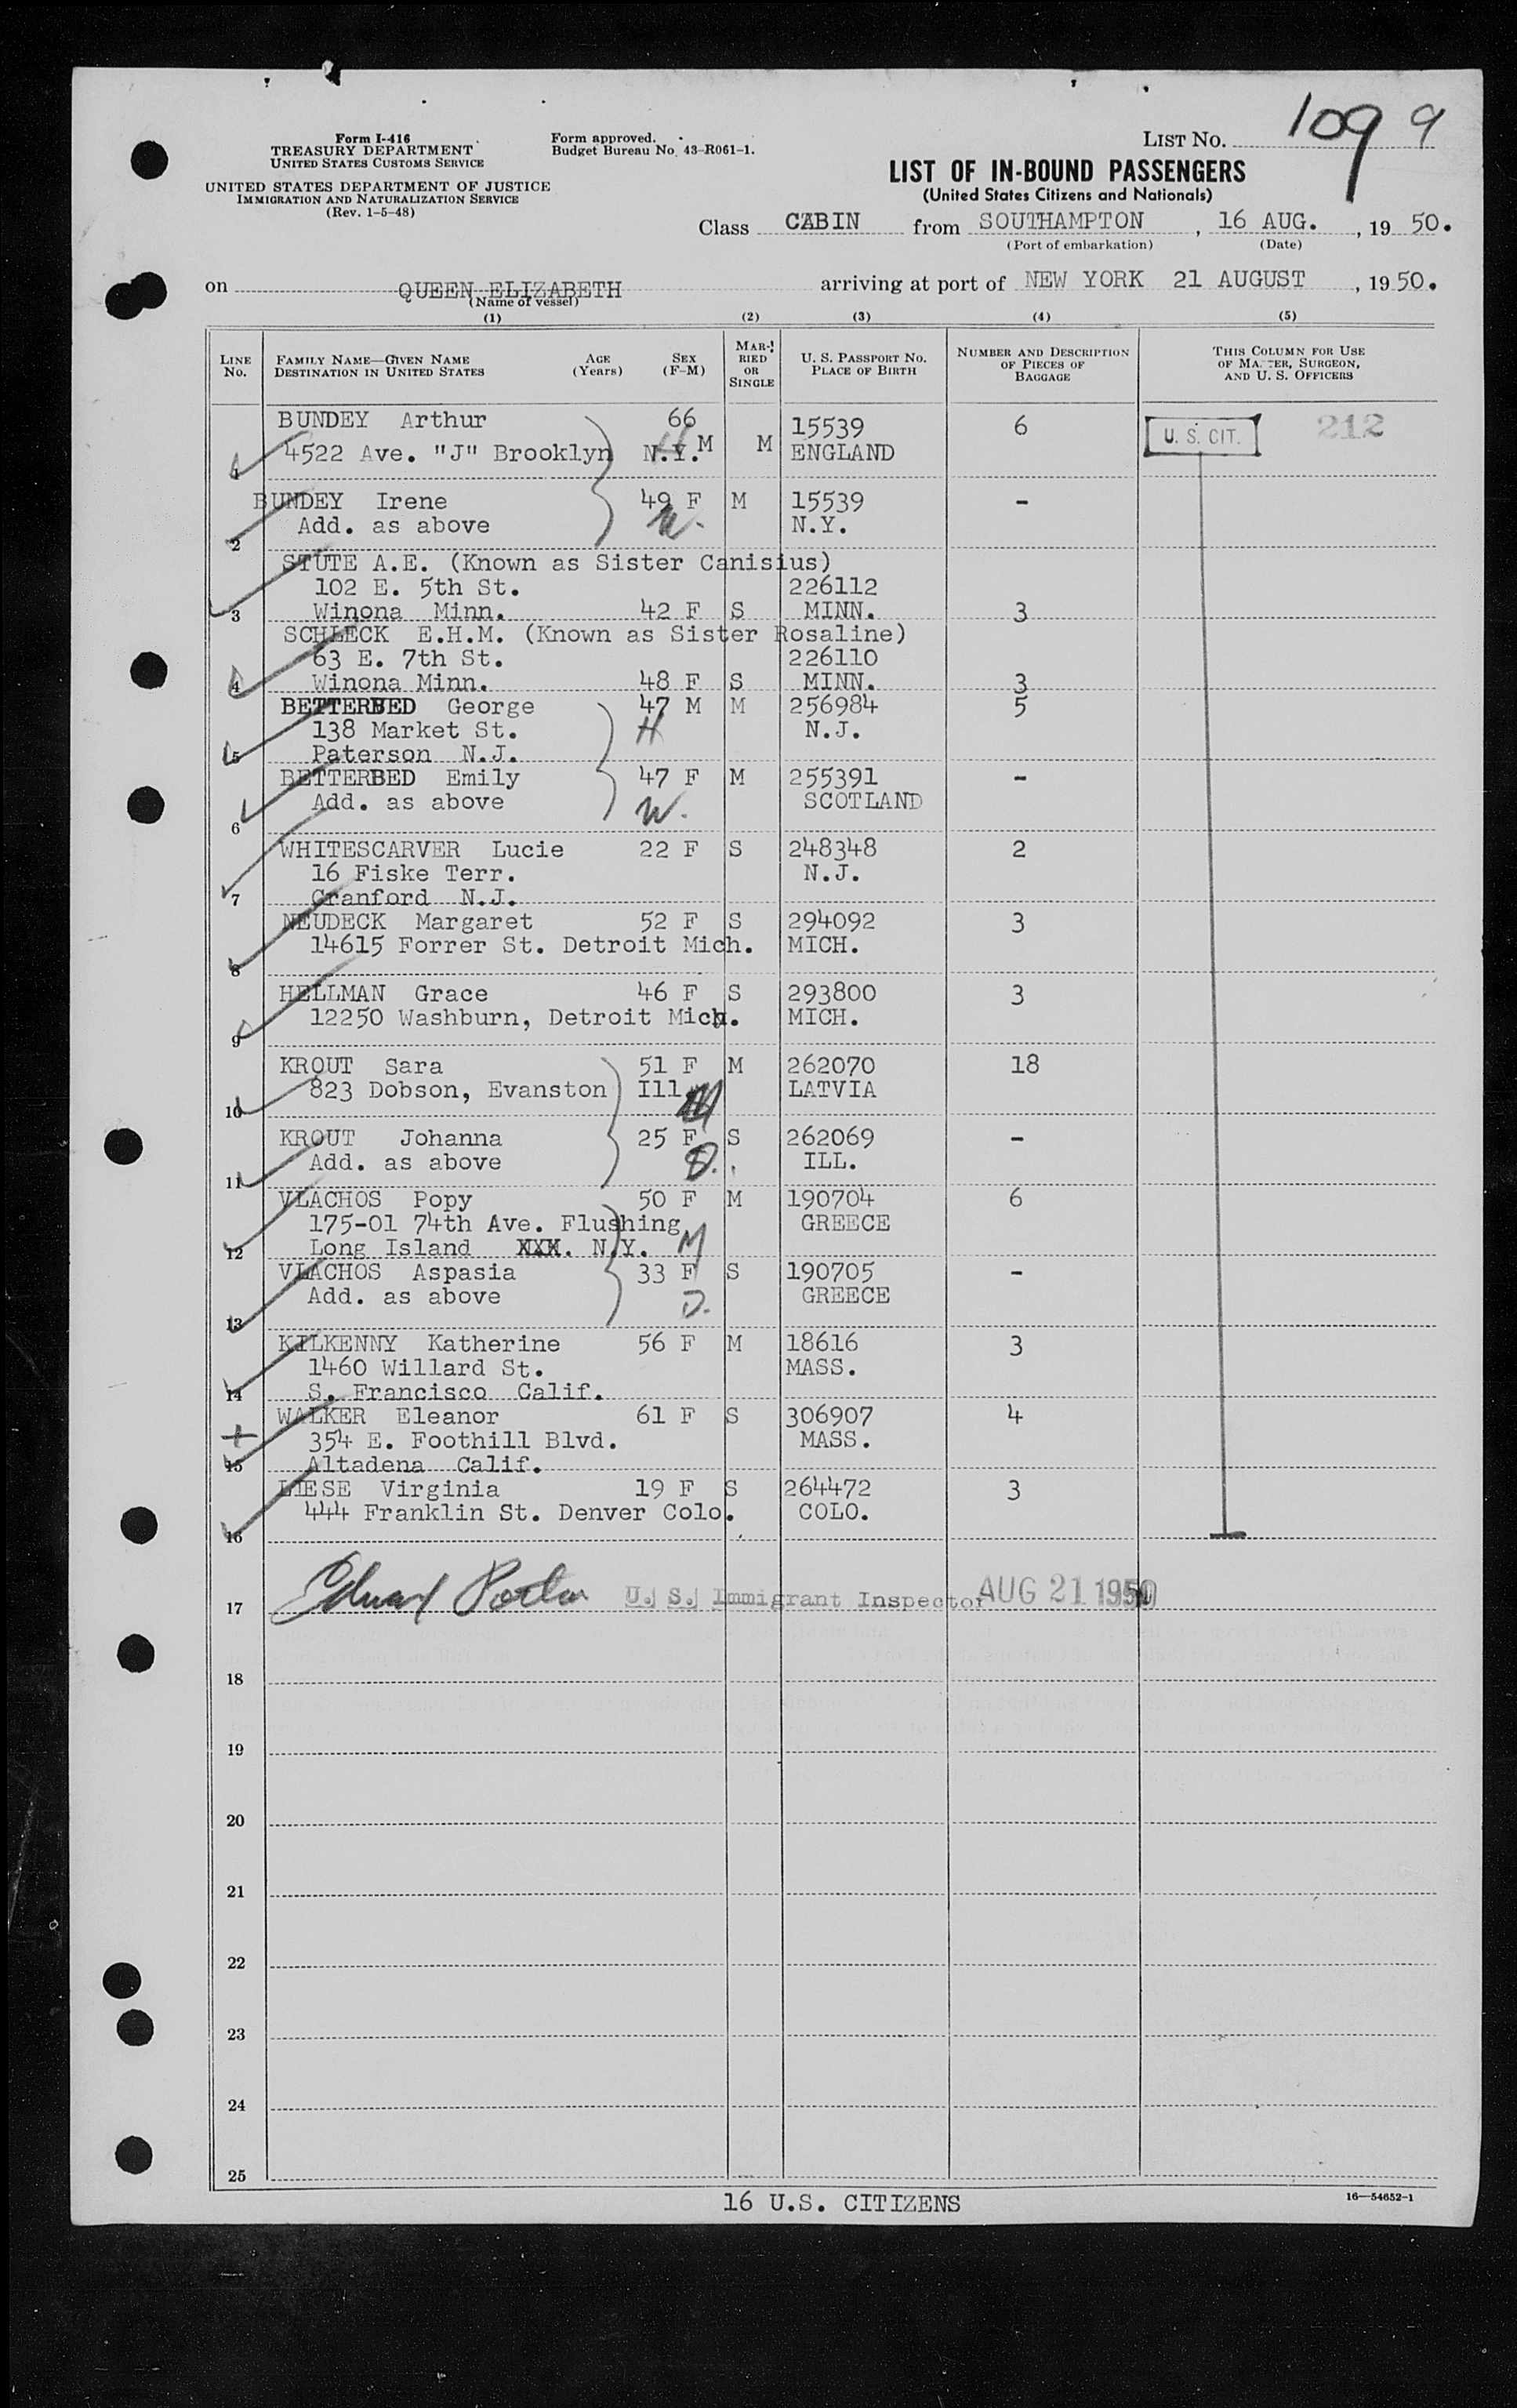 109 9
Form I-416
TREASURY DEPARTMENT
UNITED STATES CUSTOMS SERVICE
UNITED STATES DEPARTMENT OF JUSTICE
IMMIGRATION AND NATURALIZATION SERVICE
(Rev. 1-5-48)
Form approved.
Budget Bureau No. 43-R061-1.
LIST NO.
LIST OF IN-BOUND PASSENGERS
(United States Citizens and Nationals)
Class CABIN from SOUTHAMPTON, 16 AUG., 19 50.
(Port of embarkation) (Date)
on QUEEN ELIZABETH arriving at port of NEW YORK 21 AUGUST, 19 50.
(Name of vessel)
(1) (2) (3) (4) (5)
LINE NO. FAMILY NAME—GIVEN NAME DESTINATION IN UNITED STATES AGE (Years) SEX (F-M) MARRIED OR SINGLE U. S. PASSPORT NO. PLACE OF BIRTH NUMBER AND DESCRIPTION OF PIECES OF BAGGAGE THIS COLUMN FOR USE OF MASTER, SURGEON, AND U. S. OFFICERS
BUNDEY Arthur 66 15539 6 U. S. CIT. 212
1 4522 Ave. "J" Brooklyn N.Y. M M ENGLAND
BUNDEY Irene 49 F M 15539 -
Add. as above W. N.Y.
2
STUTE A.E. (Known as Sister Canisius)
102 E. 5th St. 226112
3 Winona Minn. 42 F S MINN. 3
SCHLECK E.H.M. (Known as Sister Rosaline)
63 E. 7th St. 226110
4 Winona Minn. 48 F S MINN. 3
BETTERBED George 47 M M 256984 5
138 Market St. H N.J.
5 Paterson N.J.
BETTERBED Emily 47 F M 255391 -
Add. as above W. SCOTLAND
6
WHITESCARVER Lucie 22 F S 248348 2
16 Fiske Terr. N.J.
7 Cranford N.J.
NEUDECK Margaret 52 F S 294092 3
14615 Forrer St. Detroit Mich. MICH.
8
HELLMAN Grace 46 F S 293800 3
12250 Washburn, Detroit Mich. MICH.
9
KROUT Sara 51 F M 262070 18
823 Dobson, Evanston Ill. M LATVIA
10
KROUT Johanna 25 F S 262069 -
Add. as above D. ILL.
11
VLACHOS Popy 50 F M 190704 6
175-01 74th Ave. Flushing GREECE
12 Long Island XXX. N.Y. M
VLACHOS Aspasia 33 F S 190705 -
Add. as above D. GREECE
13
KILKENNY Katherine 56 F M 18616 3
1460 Willard St. MASS.
14 S. Francisco Calif.
WALKER Eleanor 61 F S 306907 4
354 E. Foothill Blvd. MASS.
15 Altadena Calif.
LIESE Virginia 19 F S 264472 3
444 Franklin St. Denver Colo. COLO.
16
17 U. S. Immigrant Inspector AUG 21 1950
18
19
20
21
22
23
24
25
16 U.S. CITIZENS
16—54652-1